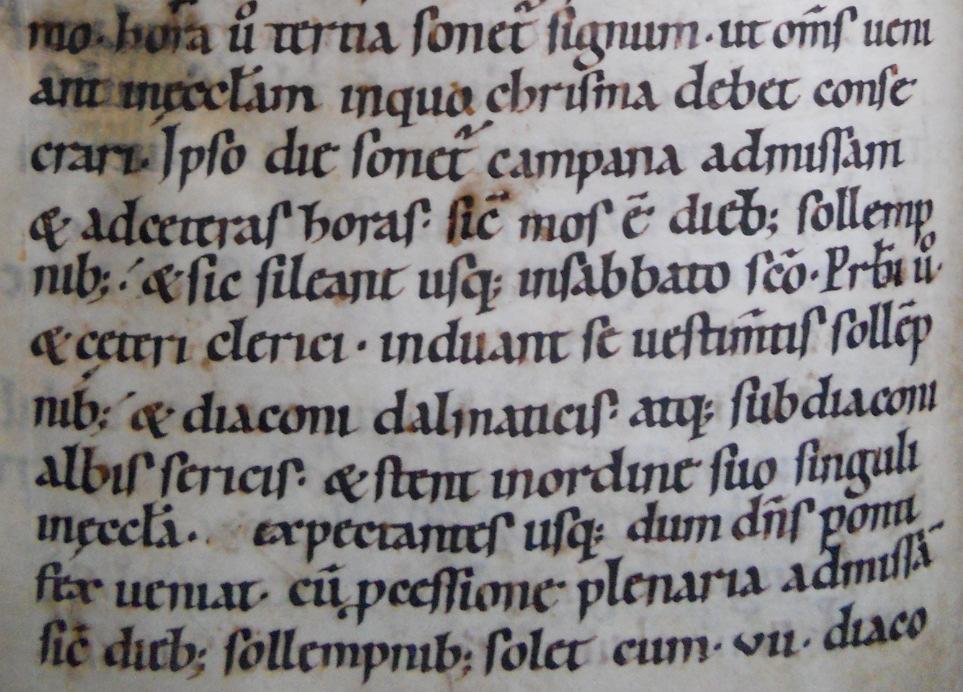 mo. hora ů tertia ſonet̃ ſignum. ut om̄ſ ueni
ant inęccłam inqua chriſma debet conſe
crari. Ipſo die ſonet̃ campana admiſſam
& adceteraſ horaſ. ſic̄ moſ ē dieƀ; ſollemp
nib; & ſic ſileant uſq; inſabbato ſcō. Prƀi ů
& cęteri clerici. induant ſe ueſtim̄tiſ ſollēp
nib; & diaconi dalmaticiſ. atq; ſubdiaconi
albiſ ſericiſ. & ſtent inordine ſuo ſinguli
inęccłā. expectanteſ uſq; dum dn̄ſ ponti
fex ueniat. cū ꝓceſſione plenaria admiſſā
ſic̄ dieb; ſollempnib; ſolet cum. vii. diaco